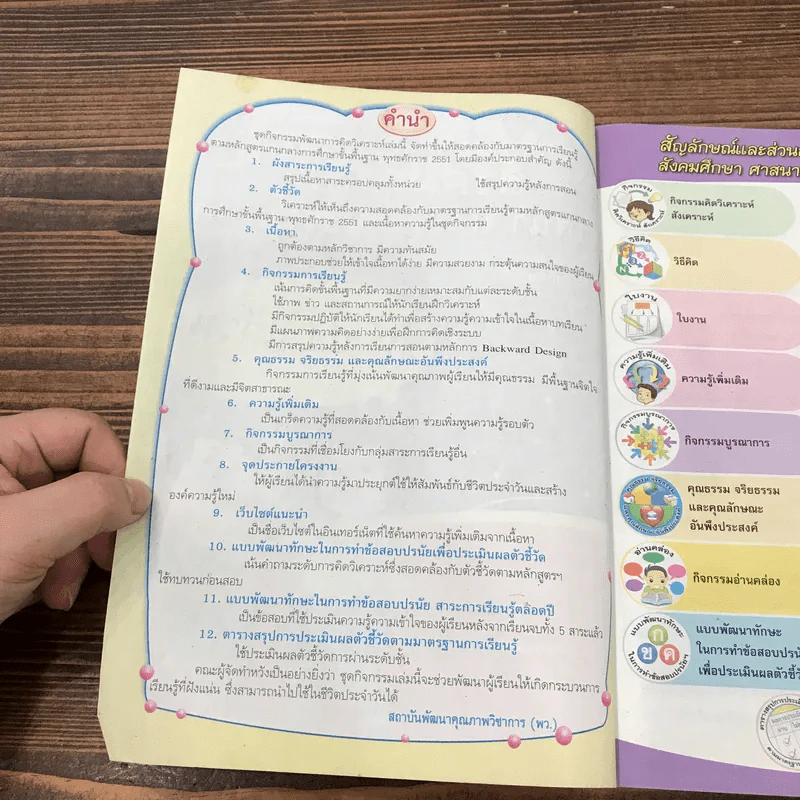 คำนำ
ชุดกิจกรรมพัฒนาการคิดวิเคราะห์เล่มนี้ จัดทำขึ้นให้สอดคล้องกับมาตรฐานการเรียนรู้
ตามหลักสูตรแกนกลางการศึกษาขั้นพื้นฐาน พุทธศักราช 2551 โดยมีองค์ประกอบสำคัญ ดังนี้
1. ผังสาระการเรียนรู้
สรุปเนื้อหาสาระครอบคลุมทั้งหน่วย ใช้สรุปความรู้หลังการสอน
2. ตัวชี้วัด
วิเคราะห์ให้เห็นถึงความสอดคล้องกับมาตรฐานการเรียนรู้ตามหลักสูตรแกนกลาง
การศึกษาขั้นพื้นฐาน พุทธศักราช 2551 และเนื้อหาความรู้ในชุดกิจกรรม
3. เนื้อหา
ถูกต้องตามหลักวิชาการ มีความทันสมัย
ภาพประกอบช่วยให้เข้าใจเนื้อหาได้ง่าย มีความสวยงาม กระตุ้นความสนใจของผู้เรียน
4. กิจกรรมการเรียนรู้
เน้นการคิดขั้นพื้นฐานที่มีความยากง่ายเหมาะสมกับแต่ละระดับชั้น
ใช้ภาพ ข่าว และสถานการณ์ให้นักเรียนฝึกวิเคราะห์
มีกิจกรรมปฏิบัติให้นักเรียนได้ทำเพื่อสร้างความรู้ความเข้าใจในเนื้อหาบทเรียน
มีแผนภาพความคิดอย่างง่ายเพื่อฝึกการคิดเชิงระบบ
มีการสรุปความรู้หลังการเรียนการสอนตามหลักการ Backward Design
5. คุณธรรม จริยธรรม และคุณลักษณะอันพึงประสงค์
กิจกรรมการเรียนรู้ที่มุ่งเน้นพัฒนาคุณภาพผู้เรียนให้มีคุณธรรม มีพื้นฐานจิตใจ
ที่ดีงามและมีจิตสาธารณะ
6. ความรู้เพิ่มเติม
เป็นเกร็ดความรู้ที่สอดคล้องกับเนื้อหา ช่วยเพิ่มพูนความรู้รอบตัว
7. กิจกรรมบูรณาการ
เป็นกิจกรรมที่เชื่อมโยงกับกลุ่มสาระการเรียนรู้อื่น
8. จุดประกายโครงงาน
ให้ผู้เรียนได้นำความรู้มาประยุกต์ใช้ให้สัมพันธ์กับชีวิตประจำวันและสร้าง
องค์ความรู้ใหม่
9. เว็บไซต์แนะนำ
เป็นชื่อเว็บไซต์ในอินเทอร์เน็ตที่ใช้ค้นหาความรู้เพิ่มเติมจากเนื้อหา
10. แบบพัฒนาทักษะในการทำข้อสอบปรนัยเพื่อประเมินผลตัวชี้วัด
เน้นคำถามระดับการคิดวิเคราะห์ซึ่งสอดคล้องกับตัวชี้วัดตามหลักสูตรฯ
ใช้ทบทวนก่อนสอบ
11. แบบพัฒนาทักษะในการทำข้อสอบปรนัย สาระการเรียนรู้ตลอดปี
เป็นข้อสอบที่ใช้ประเมินความรู้ความเข้าใจของผู้เรียนหลังจากเรียนจบทั้ง 5 สาระแล้ว
12. ตารางสรุปการประเมินผลตัวชี้วัดตามมาตรฐานการเรียนรู้
ใช้ประเมินผลตัวชี้วัดการผ่านระดับชั้น
คณะผู้จัดทำหวังเป็นอย่างยิ่งว่า ชุดกิจกรรมเล่มนี้จะช่วยพัฒนาผู้เรียนให้เกิดกระบวนการ
เรียนรู้ที่ฝังแน่น ซึ่งสามารถนำไปใช้ในชีวิตประจำวันได้
สถาบันพัฒนาคุณภาพวิชาการ (พว.)
สัญลักษณ์และส่วน
สังคมศึกษา ศาสนา
กิจกรรม
คิดวิเคราะห์ สังเคราะห์
กิจกรรมคิดวิเคราะห์
สังเคราะห์
วิธีคิด
วิธีคิด
ใบงาน
ใบงาน
ความรู้เพิ่มเติม
ความรู้เพิ่มเติม
กิจกรรมบูรณาการ
กิจกรรมบูรณาการ
คุณธรรม จริยธรรม
และคุณลักษณะ
อันพึงประสงค์
อ่านคล่อง
กิจกรรมอ่านคล่อง
แบบพัฒนาทักษะ
ก
ข ค
ในการทำข้อสอบปรนัยฯ
แบบพัฒนาทักษะ
ในการทำข้อสอบปรนัย
เพื่อประเมินผลตัวชี้วัด